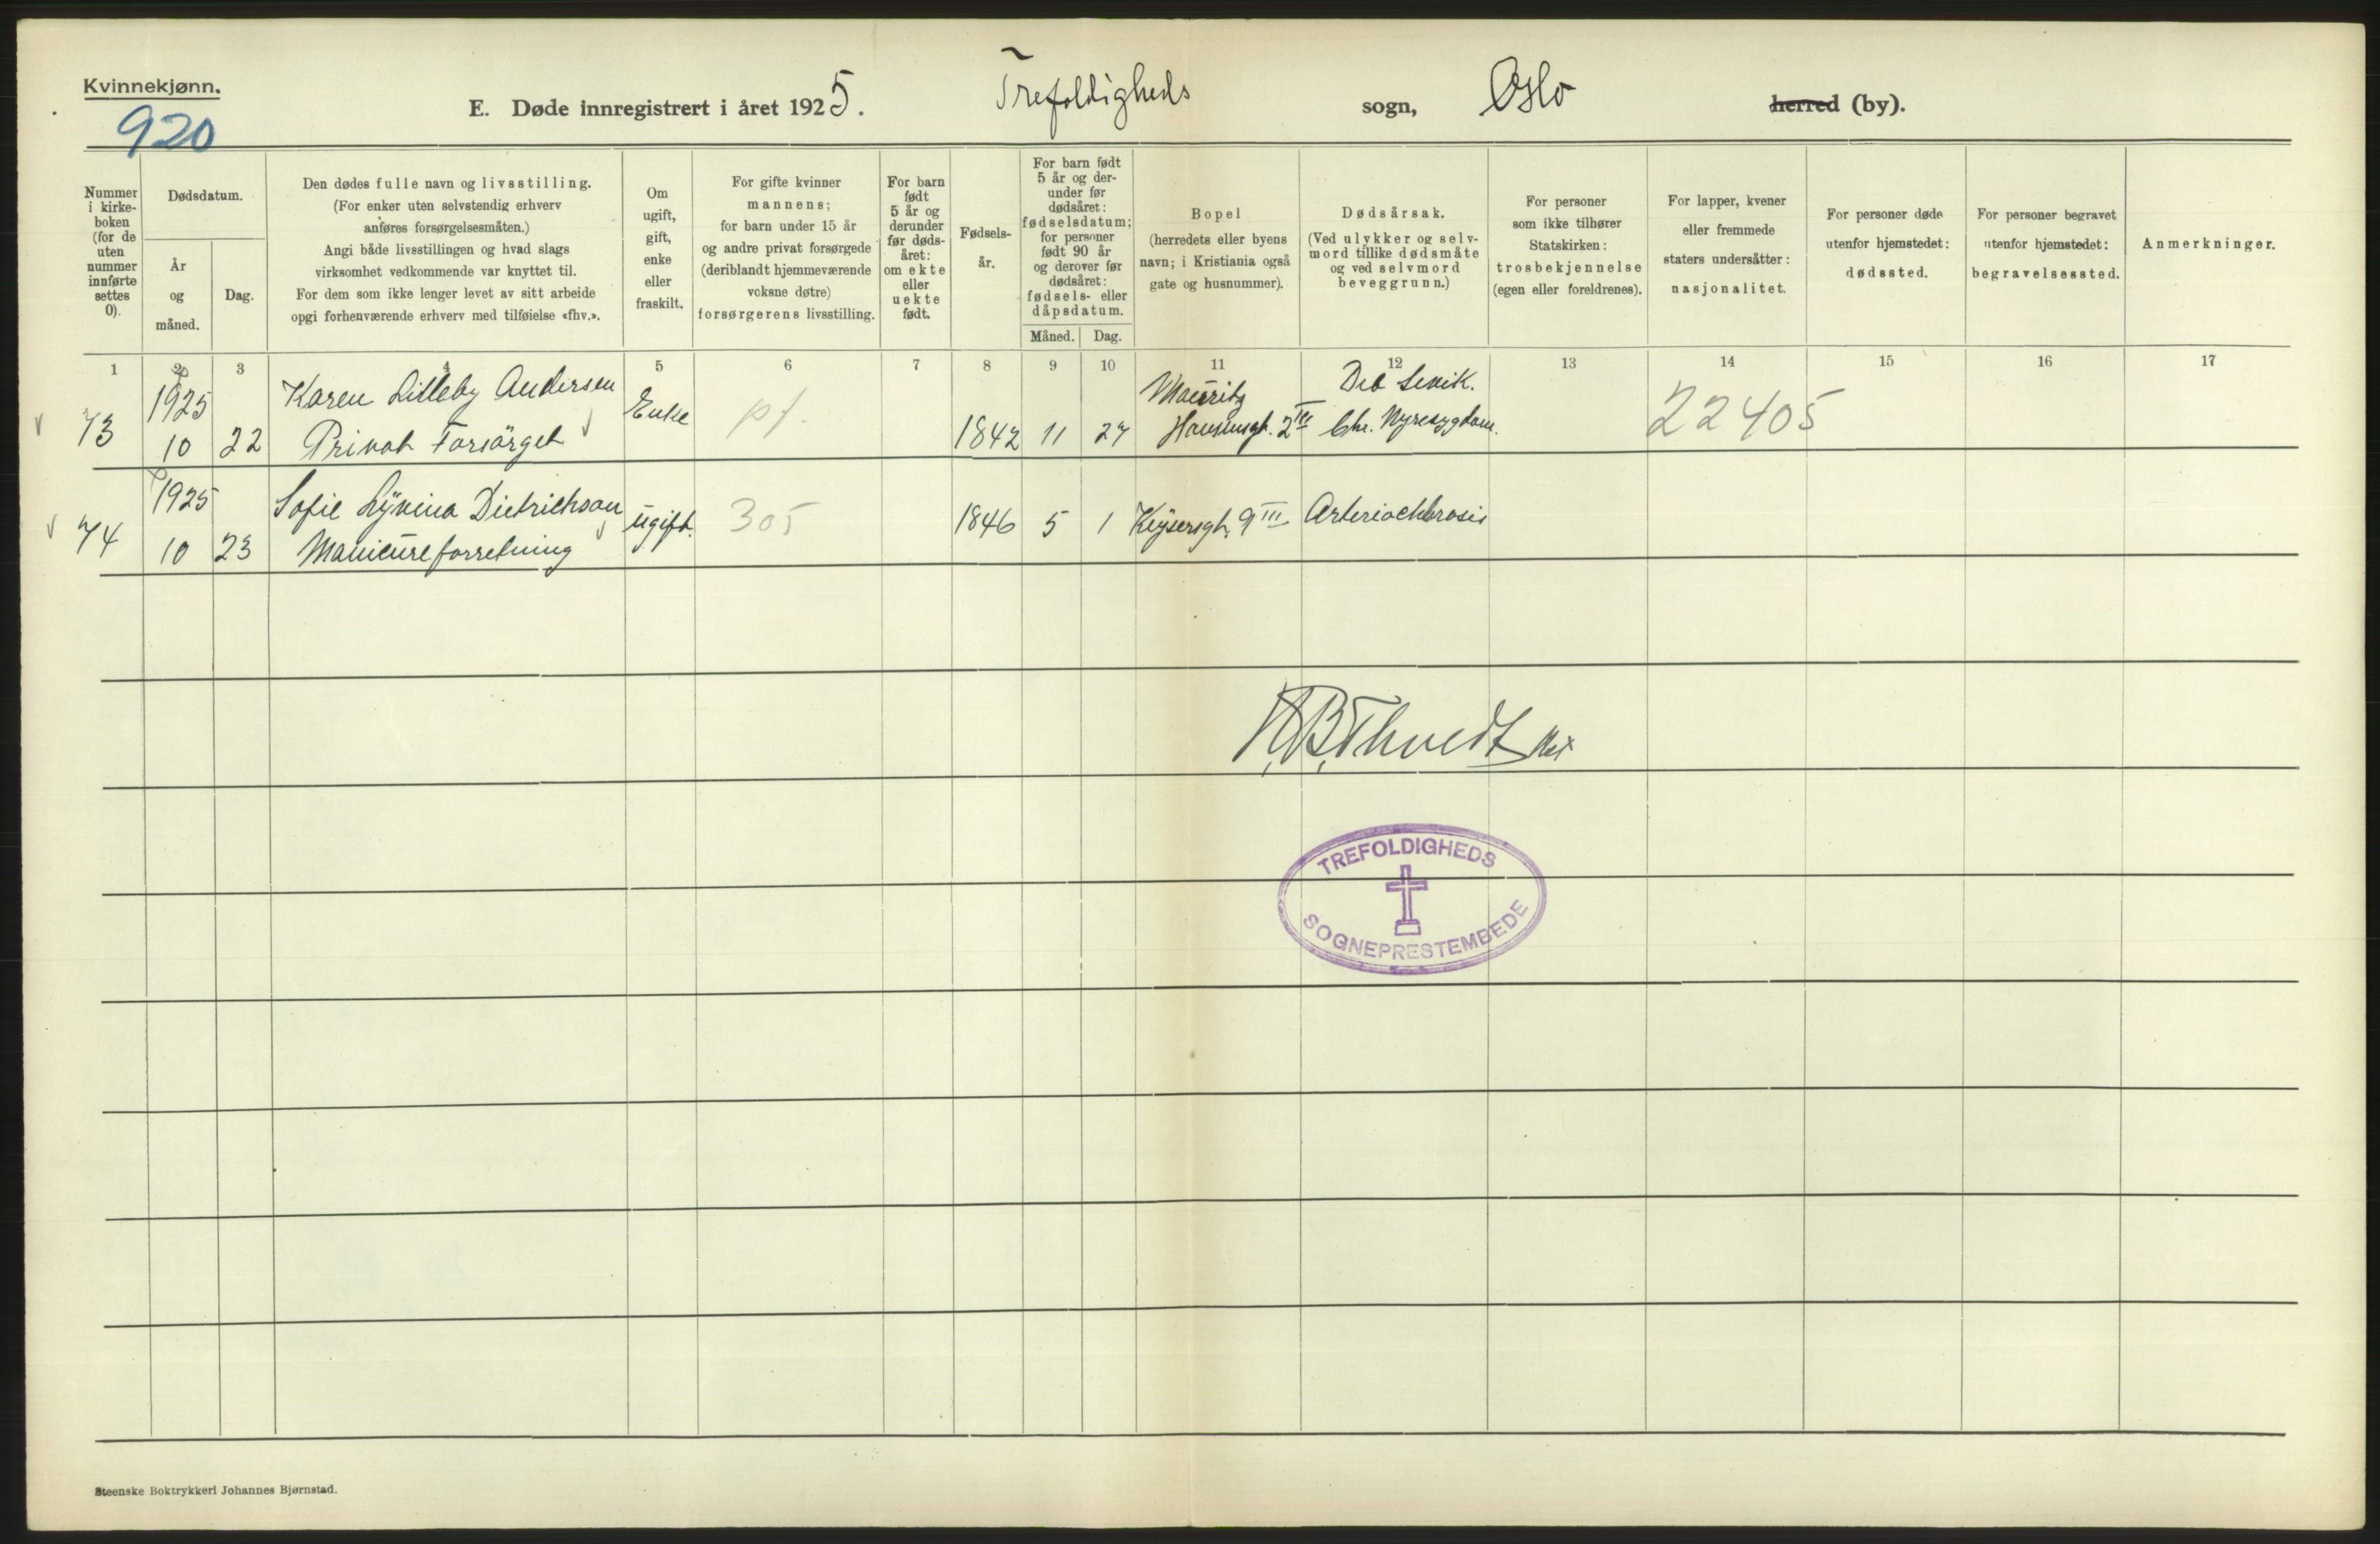 Kvinnekjønn.
920
E. Døde innregistrert i året 1925. Trefoldigheds sogn, Oslo herred (by).
Nummer i kirke-
boken
(for de
uten
nummer
innførte
settes
0).
Dødsdatum.
År
og
måned.
Dag.
Den dødes fulle navn og livsstilling.
(For enker uten selvstendig erhverv
anføres forsørgelsesmåten.)
Angi både livsstillingen og hvad slags
virksomhet vedkommende var knyttet til.
For dem som ikke lenger levet av sitt arbeide
opgi forhenværende erhverv med tilføielse «fhv.».
Om
ugift,
gift,
enke
eller
fraskilt.
For gifte kvinner
mannens;
for barn under 15 år
og andre privat forsørgede
(deriblandt hjemmeværende
voksne døtre)
forsørgerens livsstilling.
For barn
født
5 år og
derunder
før døds-
året:
om ekte
eller
uekte
født.
Fødsels-
år.
For barn født
5 år og der-
under før
dødsåret:
fødselsdatum;
for personer
født 90 år
og derover før
dødsåret:
fødsels- eller
dåpsdatum.
Måned. Dag.
Bopel
(herredets eller byens
navn; i Kristiania også
gate og husnummer).
Dødsårsak.
(Ved ulykker og selv-
mord tillike dødsmåte
og ved selvmord
beveggrunn.)
For personer
som ikke tilhører
Statskirken:
trosbekjennelse
(egen eller foreldrenes).
For lapper, kvener
eller fremmede
staters undersåtter:
nasjonalitet.
For personer døde
utenfor hjemstedet:
dødssted.
For personer begravet
utenfor hjemstedet:
begravelsessted.
Anmerkninger.
1 2 3 4 5 6 7 8 9 10 11 12 13 14 15 16 17
1925 Karen Lilleby Andersen Enke pf. Mauritz Deb Senik.
73 10 22 Privat Forsörget 1842 11 27 Hansensgt. 2 III Chr. Nyresygdom. 22405
1925 Sofie Ugift. 305 1846 5 1 Keÿsersgt. 9 III
Dietrichson
74 10 23 Manicüreforretning
TREFOLDIGHEDS
SOGNEPRESTEMBEDE
Steenske Boktrykkeri Johannes Bjørnstad.